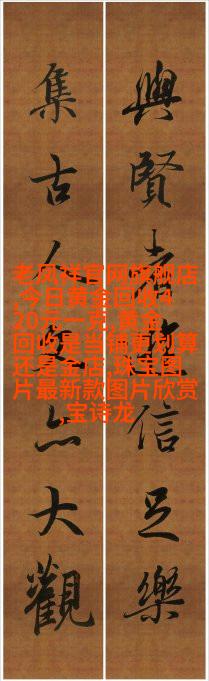 與賢者信足樂
集古人文亦大觀
老凤祥官网旗舰店
,今日黄金回收4
20元一克,黄金
回收是当铺更划算
还是金店,珠宝图
片最新款图片欣赏
,宝诗龙